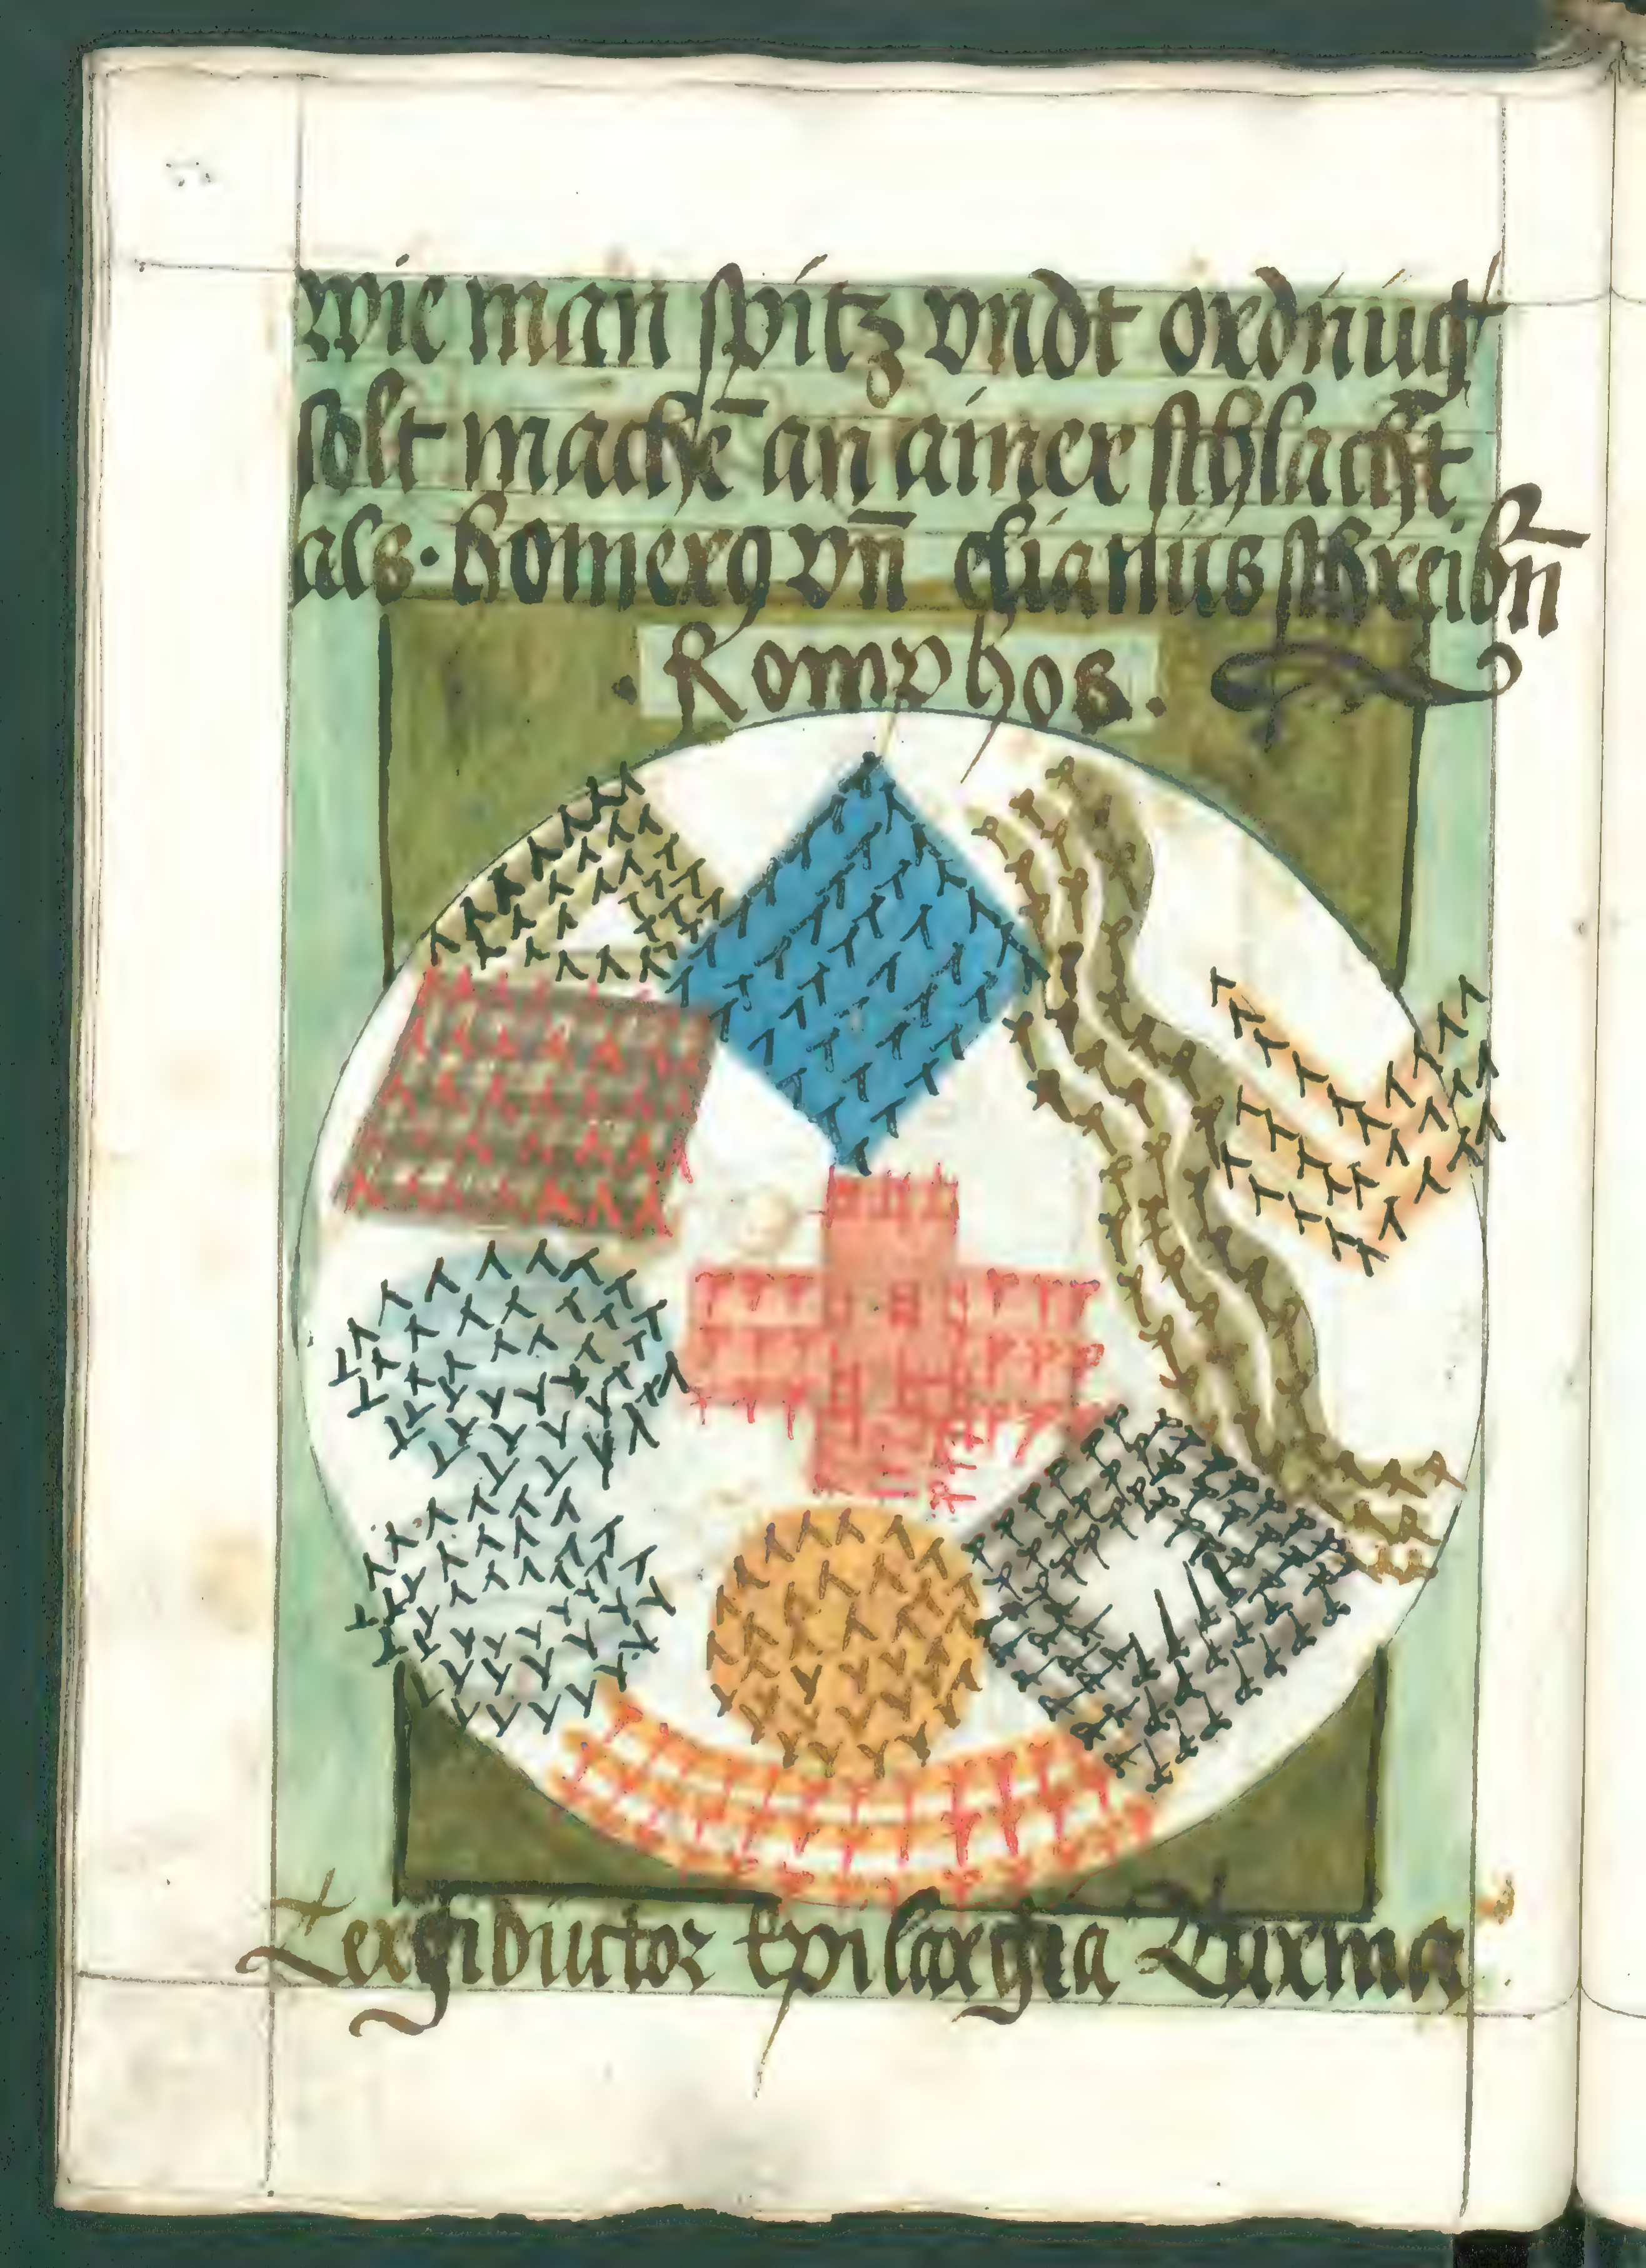 wie man spitz vndt ordnũg
solt machē an ainer schlacht
als · homerꝰ vn̄ elianus schreibn̄
· Romphos ·
Tergiductor Epilargia Turma